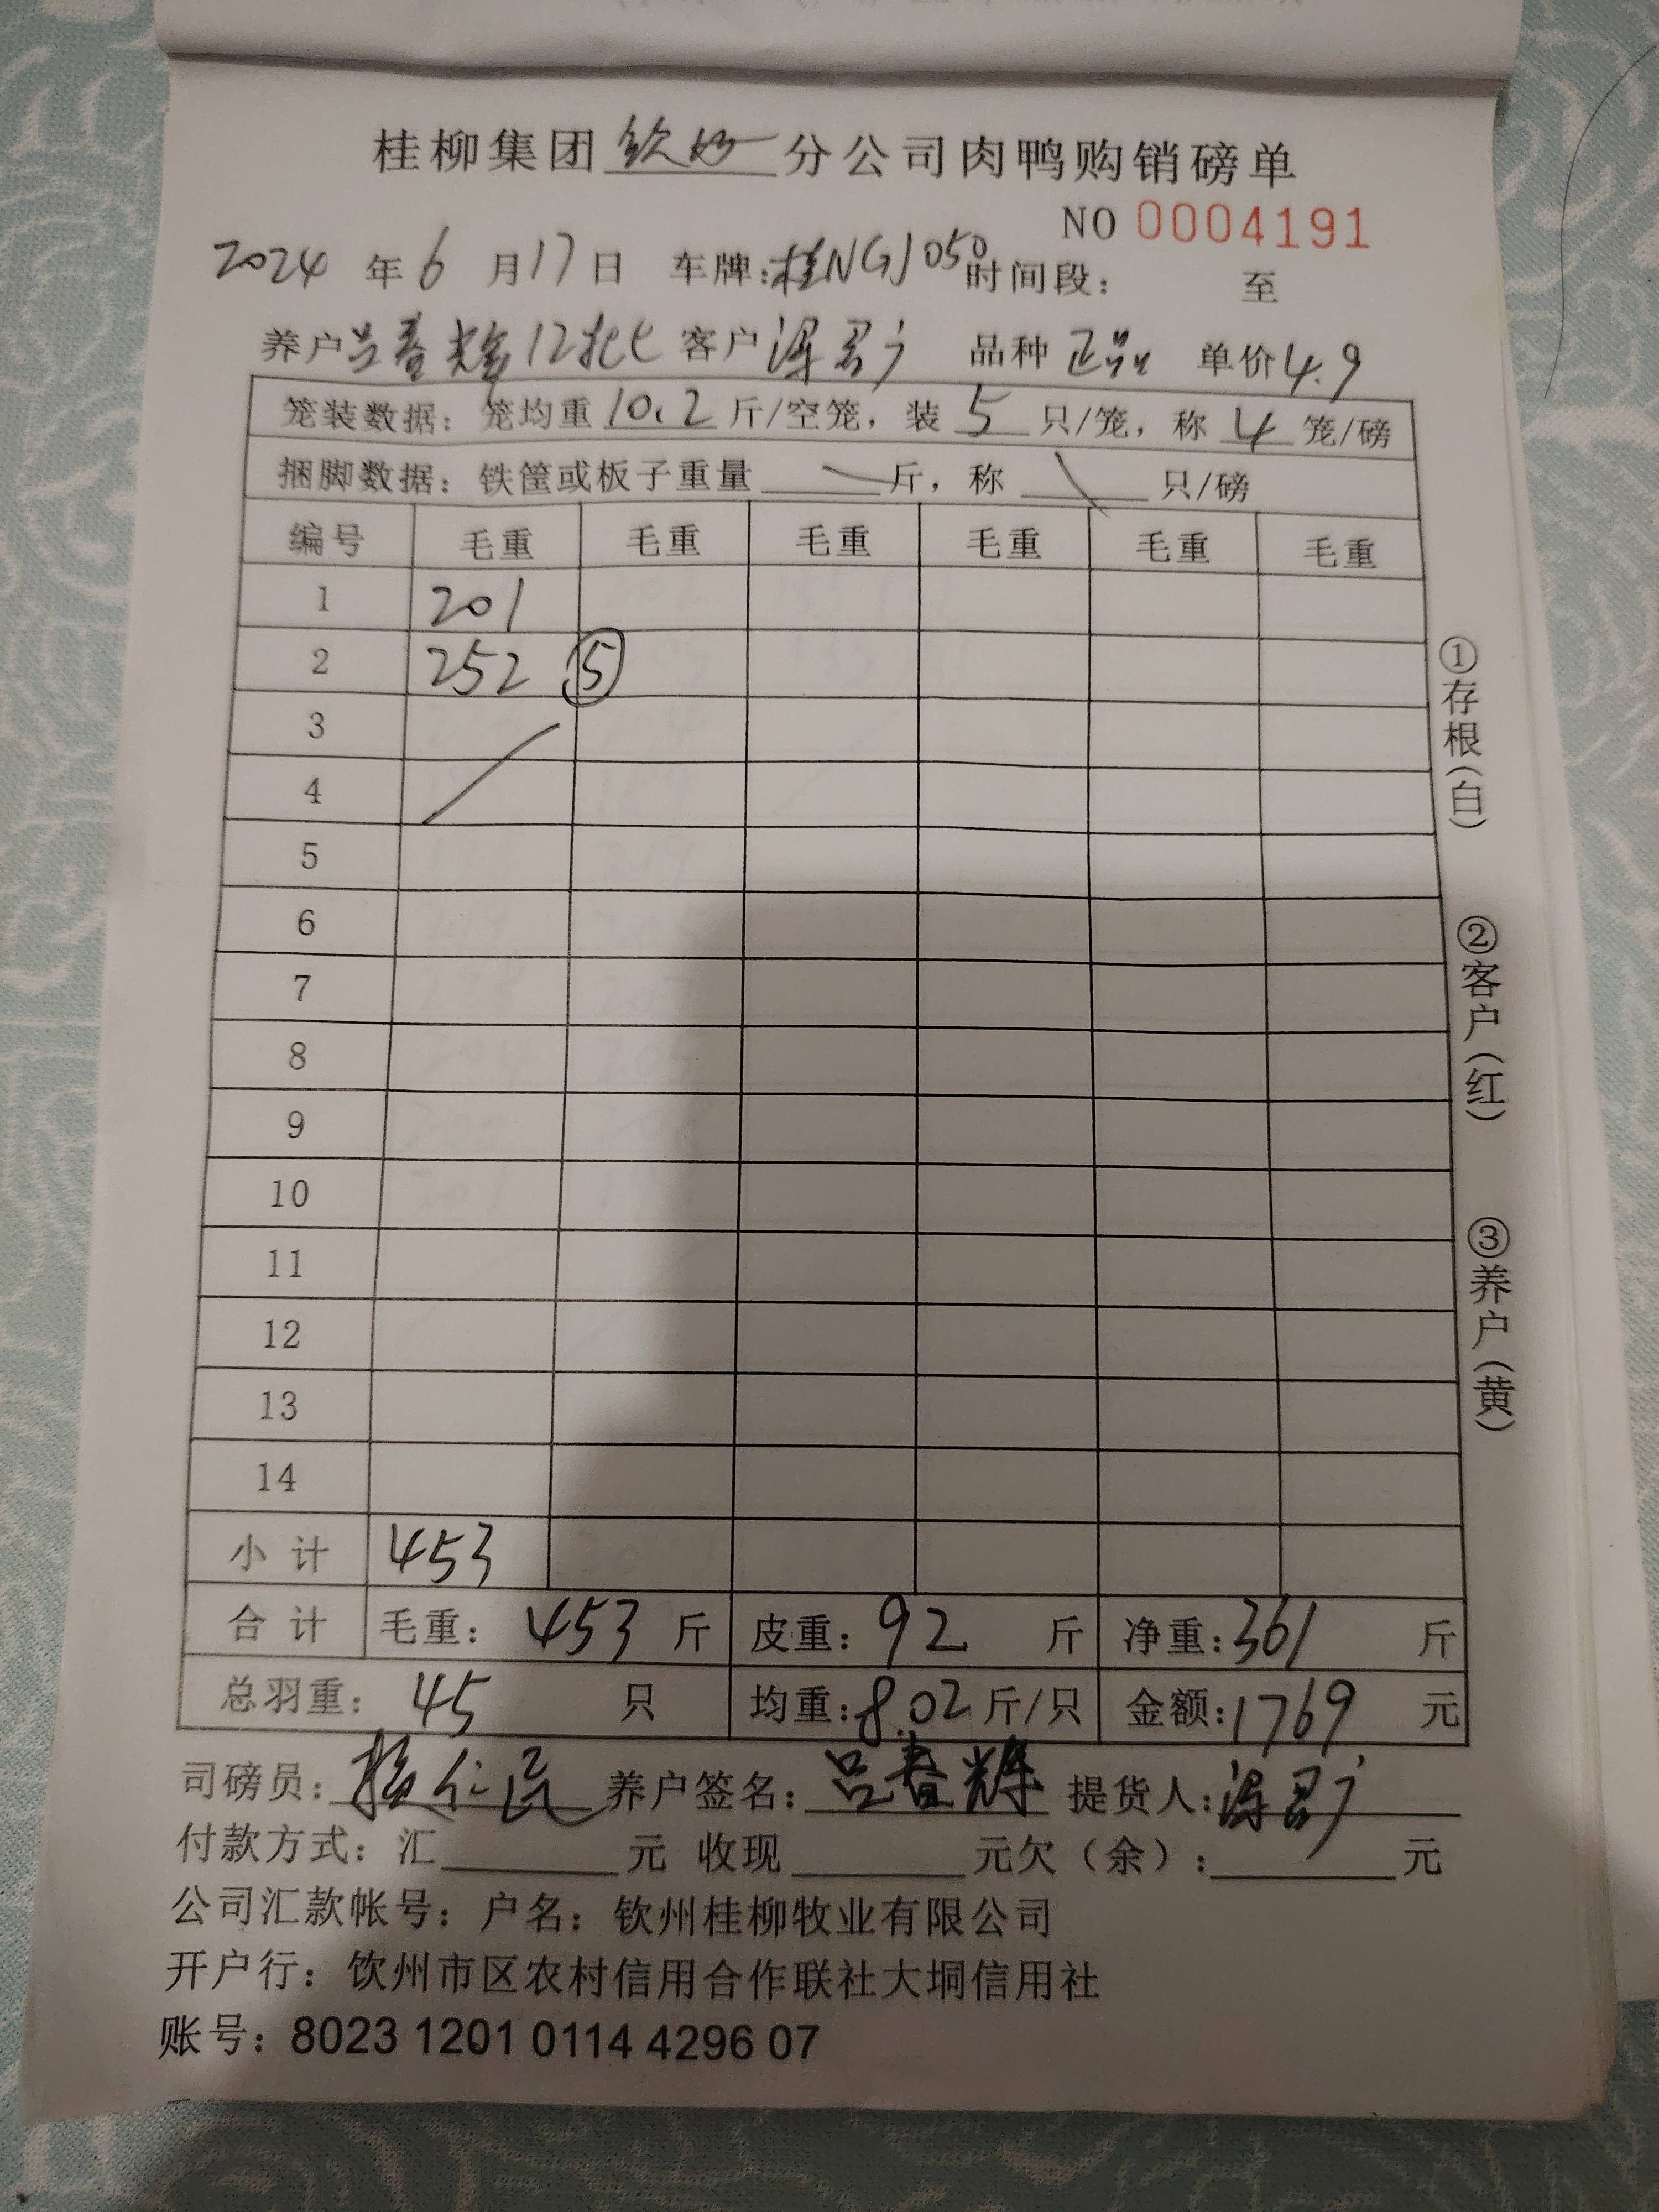 桂柳集团钦州分公司肉鸭购销磅单
NO 0004191
2024年6月17日 车牌:桂NGJ050 时间段: 至
养户吕春辉12批 客户 品种 正品 单价4.9
笼装数据: 笼均重10.2斤/空笼, 装5只/笼, 称4笼/磅
捆脚数据: 铁筐或板子重量 斤, 称 只/磅
编号 毛重 毛重 毛重 毛重 毛重 毛重
1 201
2 252 ⑤
3
4
5
6
7
8
9
10
11
12
13
14
小计 453
合计 毛重: 453 斤 皮重: 92 斤 净重: 361 斤
总羽重: 45 只 均重: 8.02 斤/只 金额: 1769 元
司磅员: 养户签名: 吕春辉 提货人:
付款方式: 汇 元 收现 元欠(余): 元
公司汇款帐号: 户名: 钦州桂柳牧业有限公司
开户行: 钦州市区农村信用合作联社大垌信用社
账号: 8023 1201 0114 4296 07
①存根(白)
②客户(红)
③养户(黄)